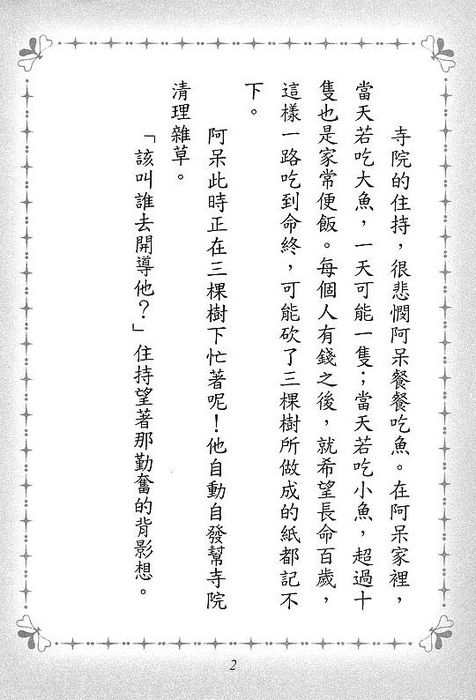 寺院的住持，很悲憫阿呆餐餐吃魚。在阿呆家裡，
當天若吃大魚，一天可能一隻；當天若吃小魚，超過十
隻也是家常便飯。每個人有錢之後，就希望長命百歲，
這樣一路吃到命終，可能砍了三棵樹所做成的紙都記不
下。
阿呆此時正在三棵樹下忙著呢！他自動自發幫寺院
清理雜草。
「該叫誰去開導他？」住持望著那勤奮的背影想。
2